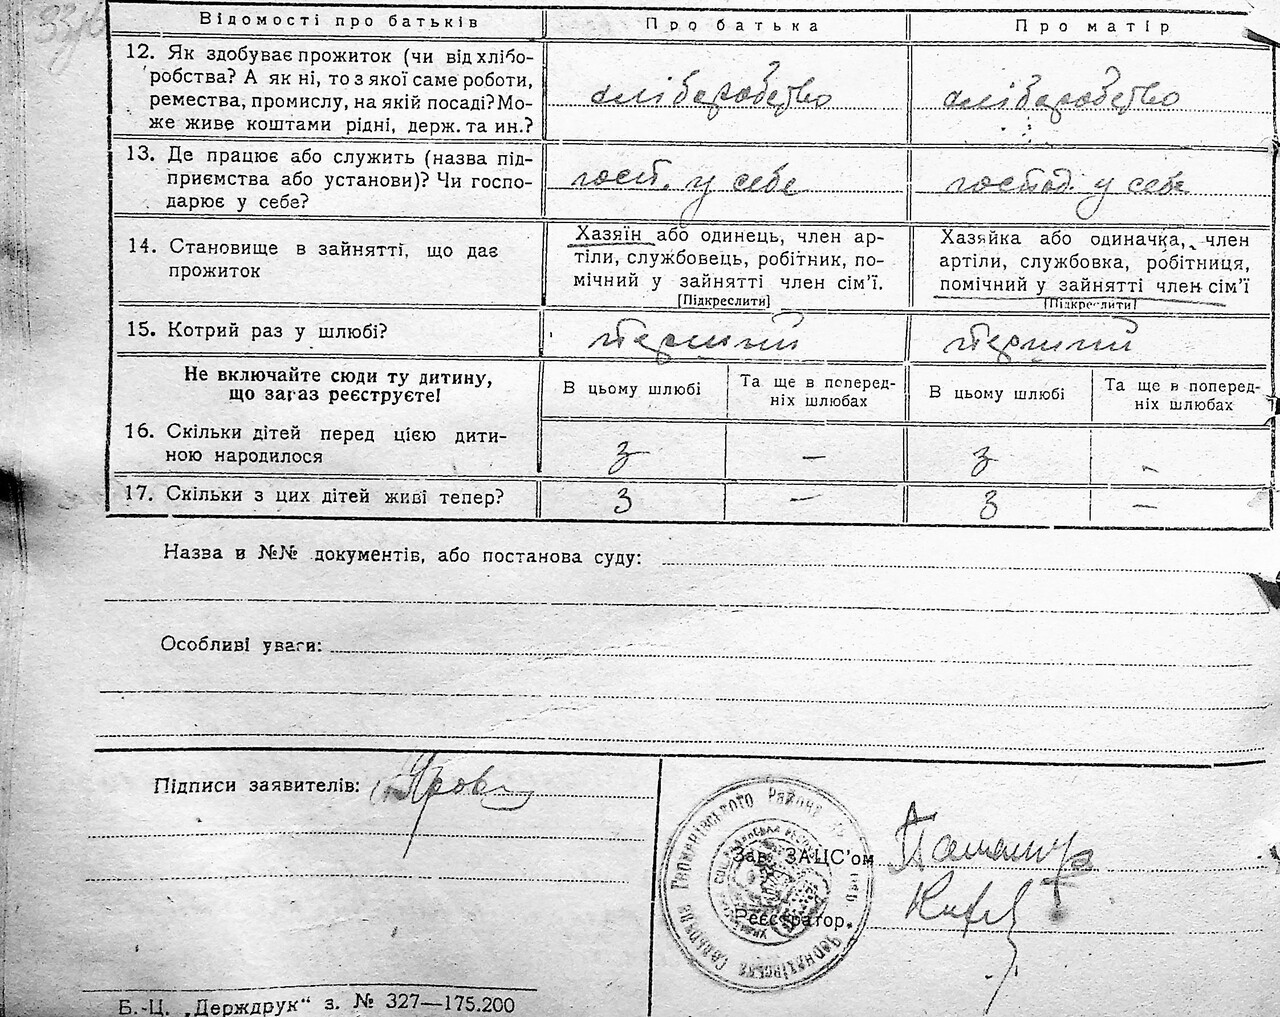 Відомості про батьків
Про батька
Про матір
12. Як здобуває прожиток (чи від хлібо-
робства? А як ні, то з якої саме роботи,
ремества, промислу, на якій посаді? Мо-
же живе коштами рідні, держ. та ин.?
хліборобство
хліборобство
13. Де працює або служить (назва під-
приємства або установи)? Чи госпо-
дарює у себе?
госп. у себе
господ. у себе
14. Становище в зайнятті, що дає
прожиток
Хазяїн або одинець, член ар-
тіли, службовець, робітник, по-
мічний у зайнятті член сім'ї.
[Підкреслити]
Хазяйка або одиначка, член
артіли, службовка, робітниця,
помічний у зайнятті член сім'ї
[Підкреслити]
15. Котрий раз у шлюбі?
перший
перший
Не включайте сюди ту дитину,
що зараз реєструєте!
В цьому шлюбі
Та ще в поперед-
ніх шлюбах
В цьому шлюбі
Та ще в поперед-
ніх шлюбах
16. Скільки дітей перед цією дити-
ною народилося
3
—
3
—
17. Скільки з цих дітей живі тепер?
3
—
3
—
Назва и №№ документів, або постанова суду:
Особливі уваги:
Підписи заявителів:
Зав. ЗАЦС'ом
Реєстратор.
Б.-Ц. „Держдрук“ з. № 327—175.200